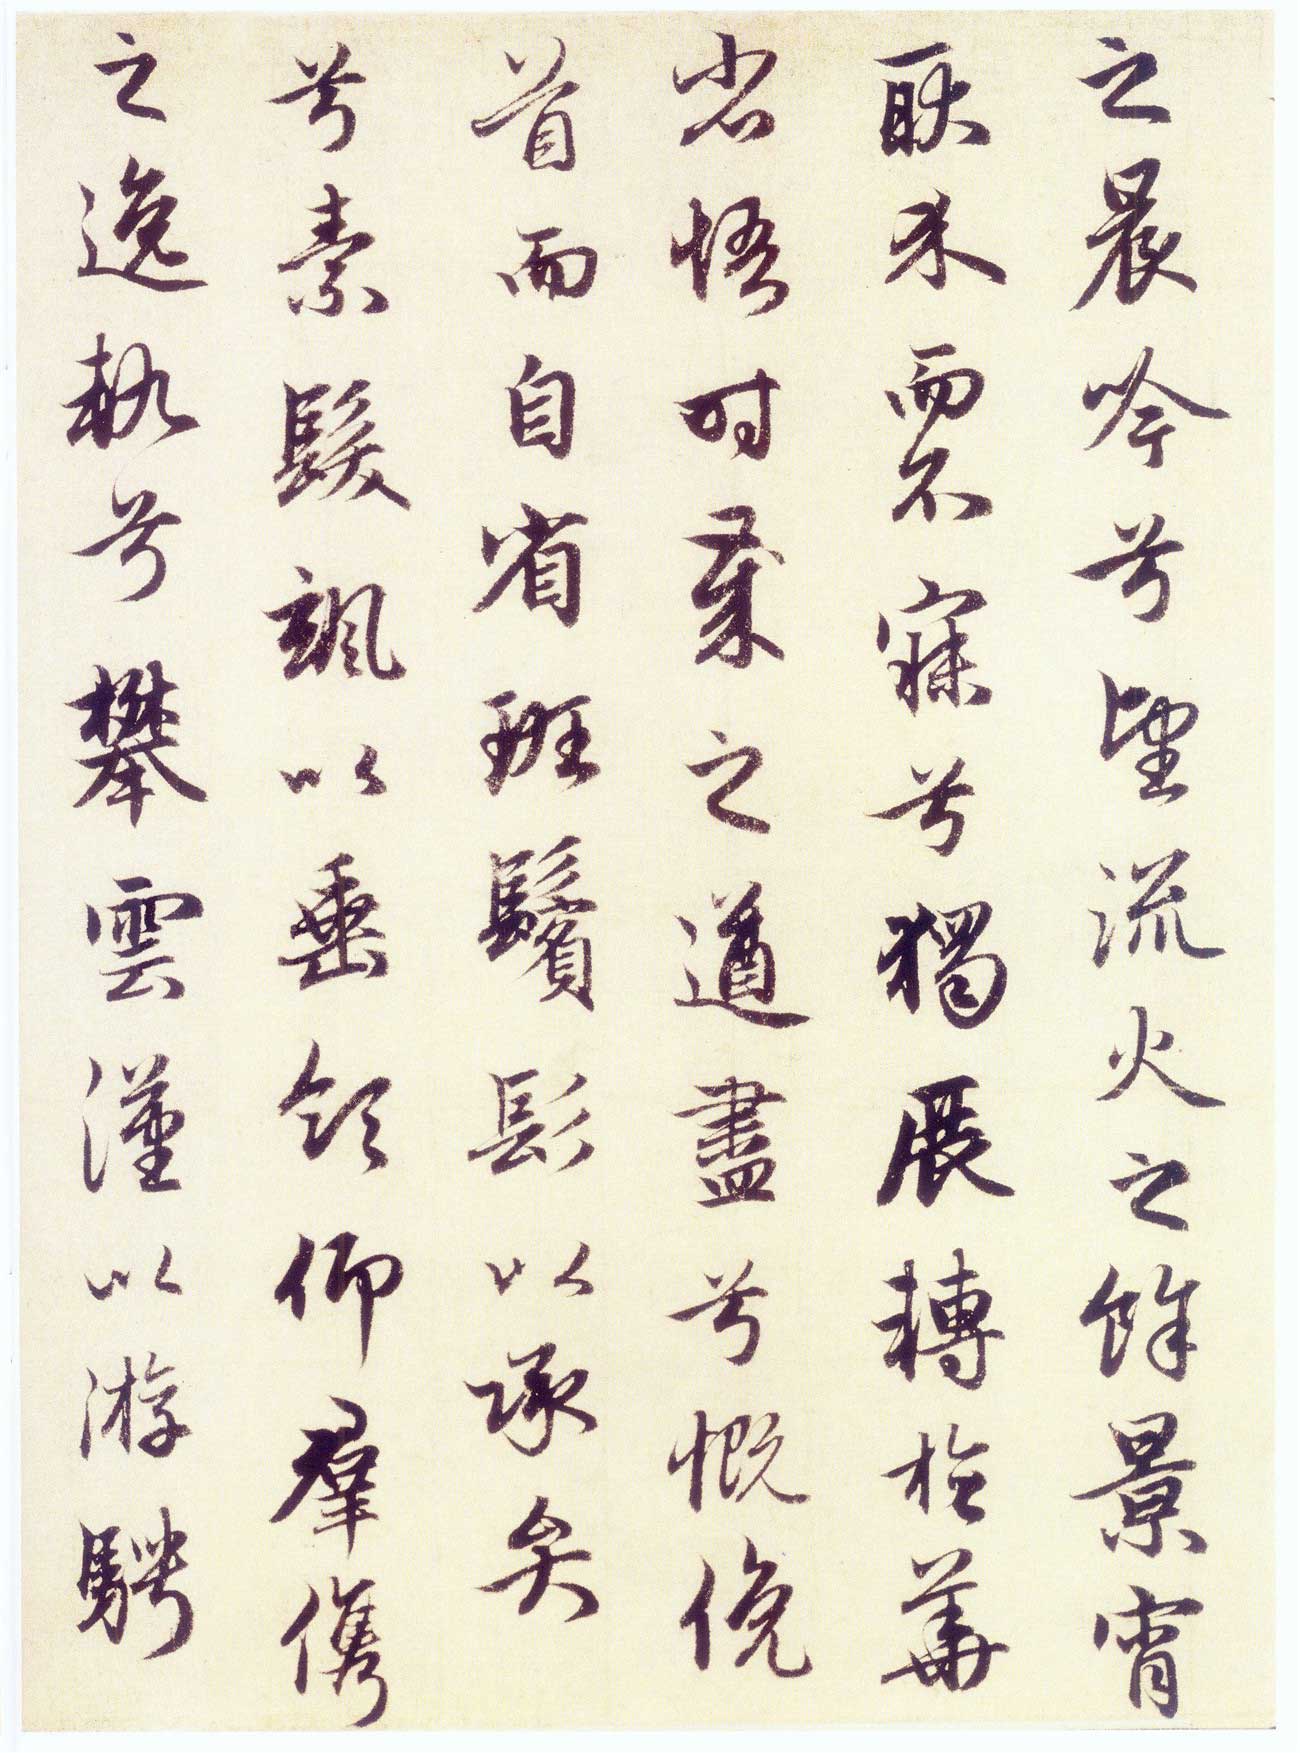 之晨吟兮望流火之餘景宵
耿介而不寐兮獨展轉於華
省悟時歲之遒盡兮慨俛
首而自省班鬢髟以承弁
兮素髮颯以垂領仰群儁
之逸軌兮攀雲漢以游騁